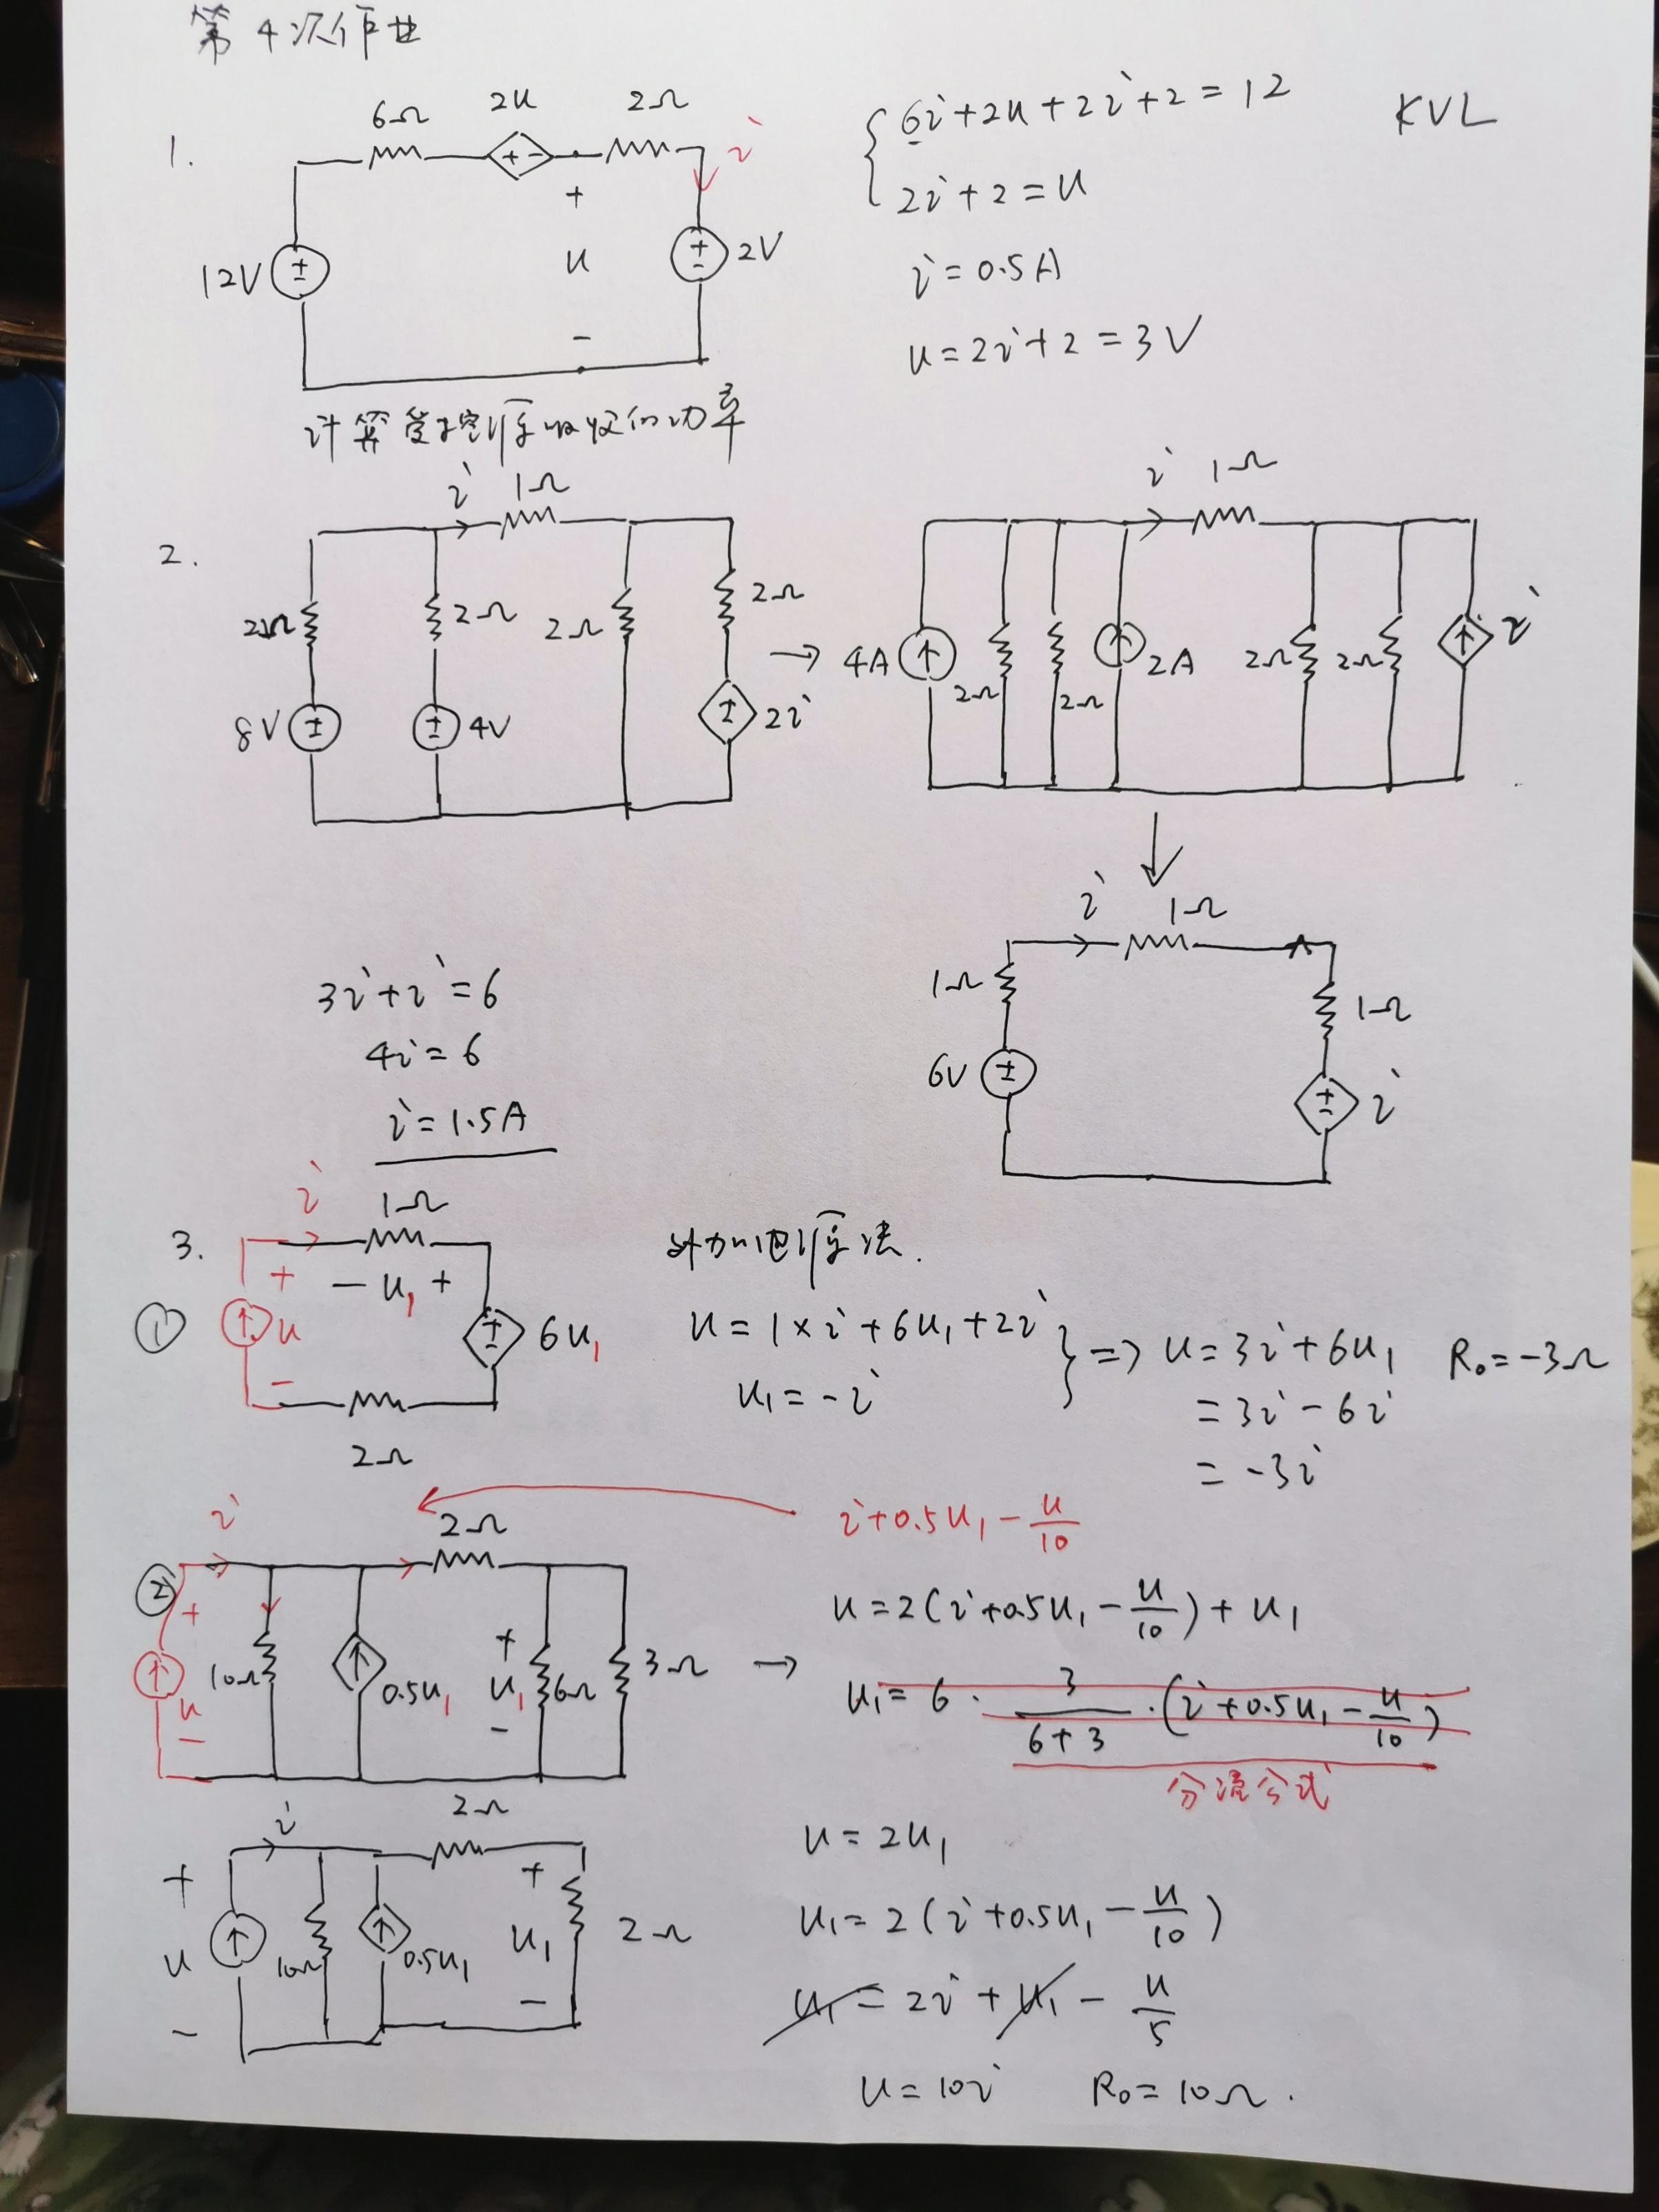 第4次作业
1.
6Ω 2u 2Ω
i
+ -
12V
+
u
-
2V
{ 6i+2u+2i+2=12 KVL
2i+2=u
i=0.5A
u=2i+2=3V
计算受控源吸收的功率
2.
i 1Ω
2Ω 2Ω 2Ω 2Ω
8V 4V 2i
→
i 1Ω
4A 2Ω 2Ω 2A 2Ω 2Ω i
i 1Ω
1Ω 1Ω
6V i
3i+i=6
4i=6
i=1.5A
3.
①
i 1Ω
+ - u₁ +
u 6u₁
-
2Ω
外加电源法.
u=1×i+6u₁+2i
u₁=-i
} => u=3i+6u₁ R₀=-3Ω
=3i-6i
=-3i
②
i 2Ω
+
u 10Ω 0.5u₁ + u₁ - 6Ω 3Ω →
-
i+0.5u₁-u/10
u=2(i+0.5u₁-u/10)+u₁
u₁=6·3/(6+3)·(i+0.5u₁-u/10)
分流公式
i 2Ω
+ +
u 10Ω 0.5u₁ u₁ 2Ω
- -
u=2u₁
u₁=2(i+0.5u₁-u/10)
u₁=2i+u₁-u/5
u=10i R₀=10Ω.